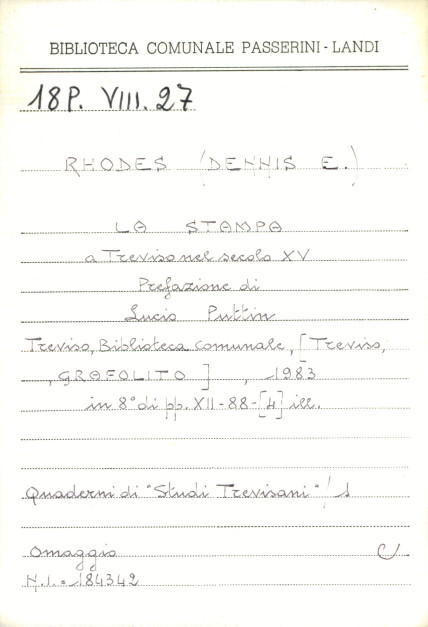 BIBLIOTECA COMUNALE PASSERINI - LANDI
18P. VIII. 27
RHODES (DENNIS E.)
LA STAMPA
a Treviso nel secolo XV
Prefazione di
Lucio Puttin
Treviso, Biblioteca Comunale, [Treviso,
, GRAFOLITO ] , 1983
in 8° di pp. XII - 88 - [4] ill.
Quaderni di "Studi Trevisani" / 1
Omaggio C/
N.I. = 184342